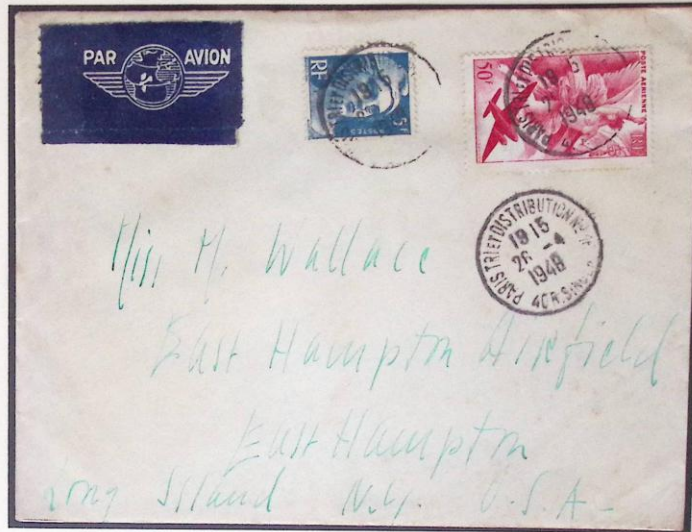 PAR AVION
RF
POSTES
50F
POSTE AERIENNE
RF
19 15
1948
PARIS TRI ET DISTRIBUTION No
19 15
26 -4
1948
40 R. SINGER
Miss M. Wallace
East Hampton Airfield
East Hampton
Long Island N.Y. U.S.A-